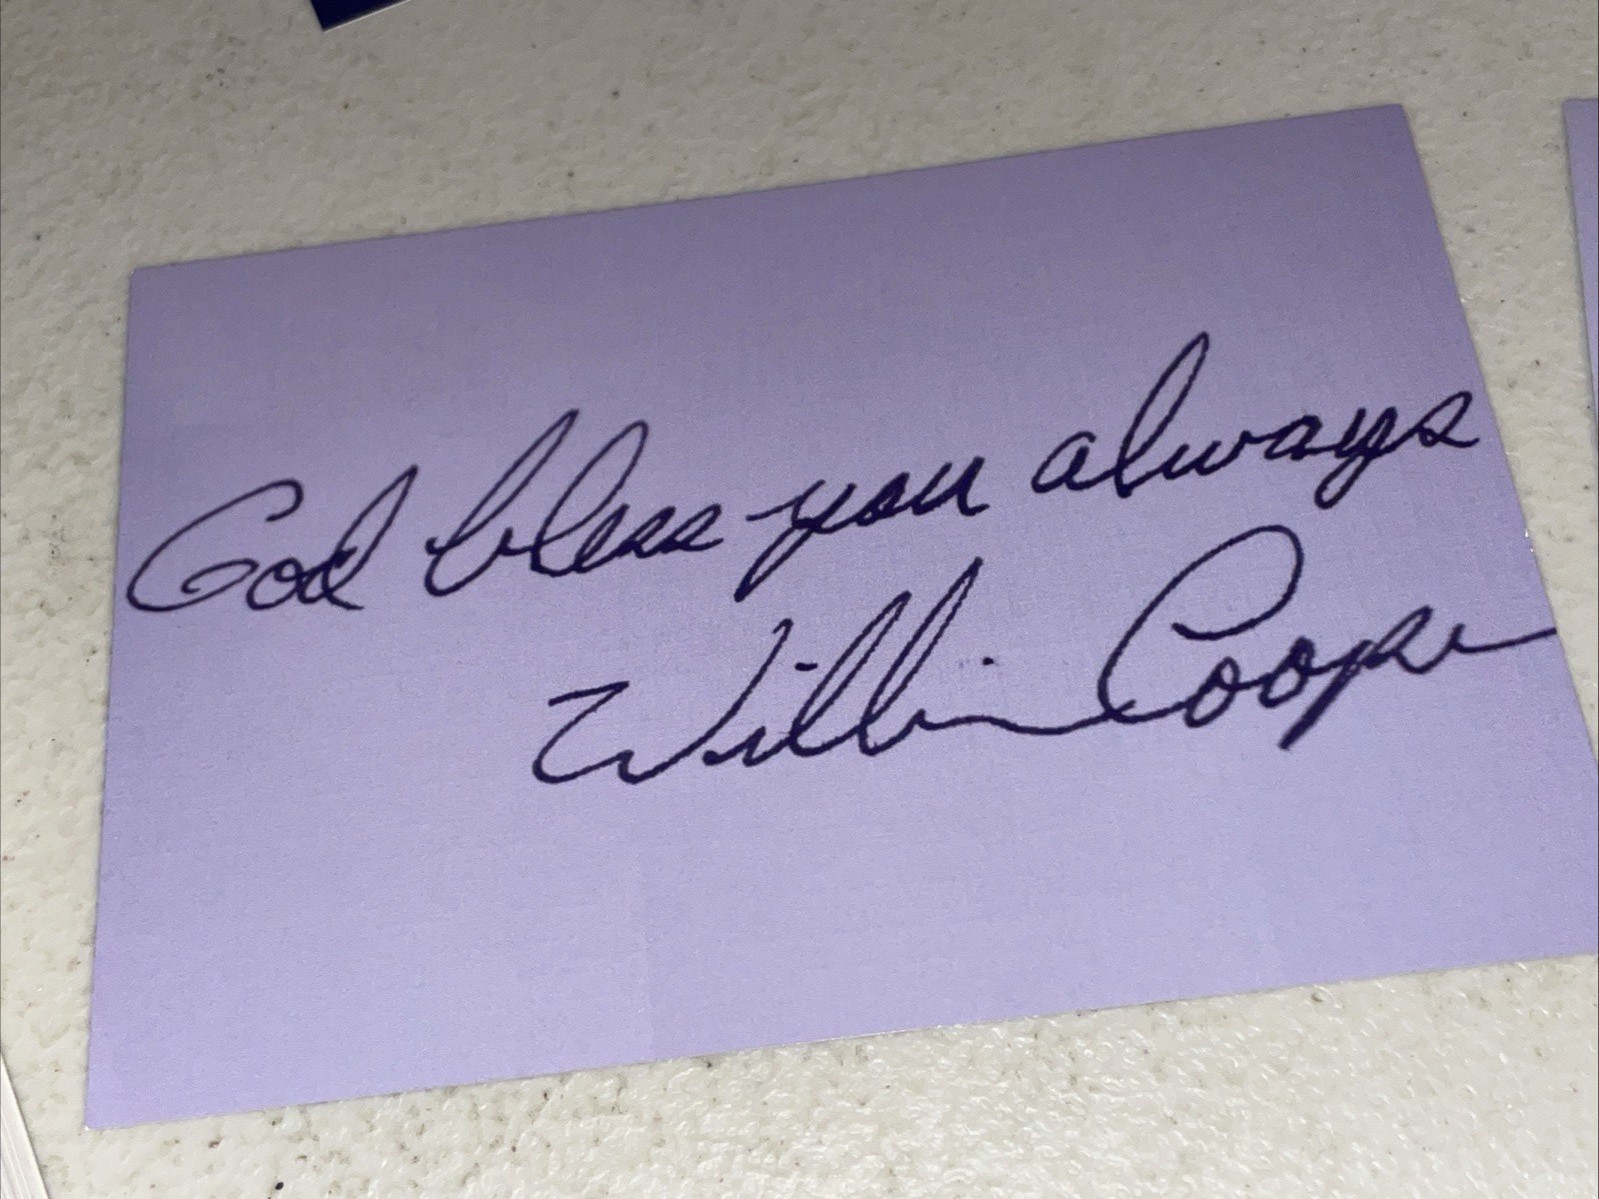 God bless you always
Willie Cooper